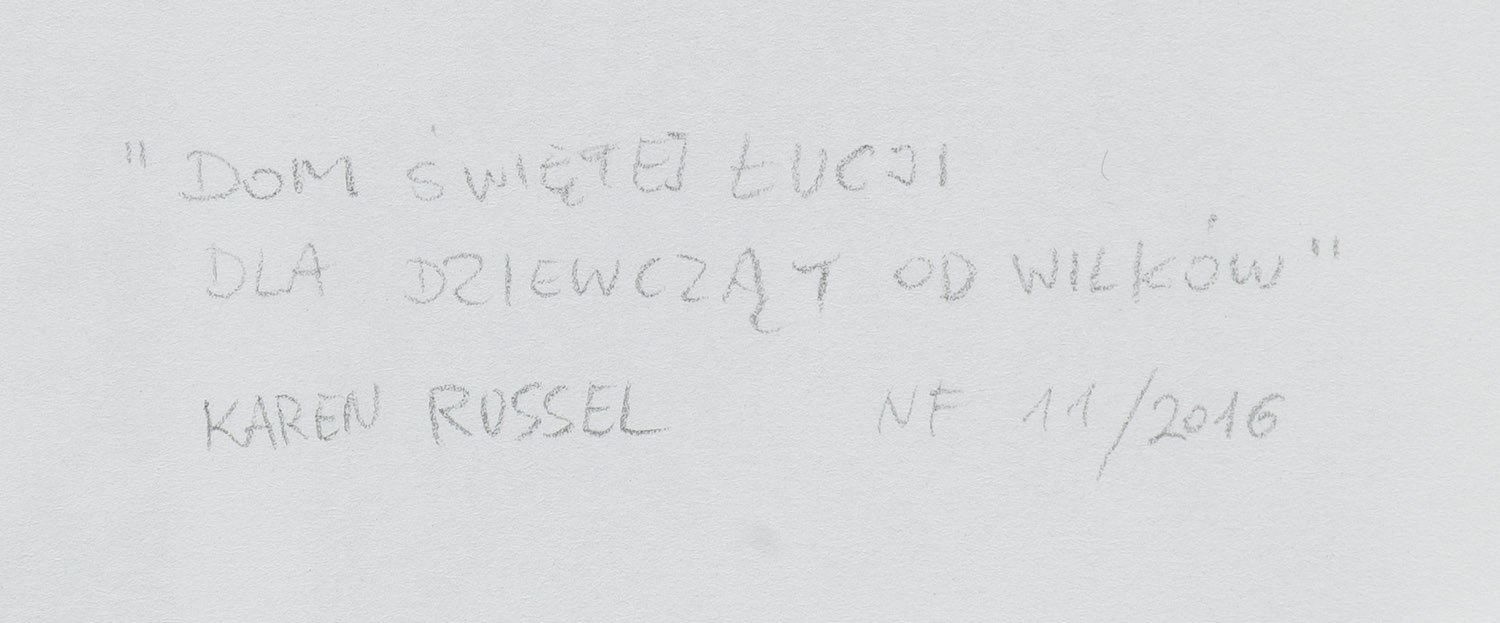 "DOM ŚWIĘTEJ ŁUCJI
DLA DZIEWCZĄT OD WILKÓW"
KAREN RUSSEL NF 11/2016